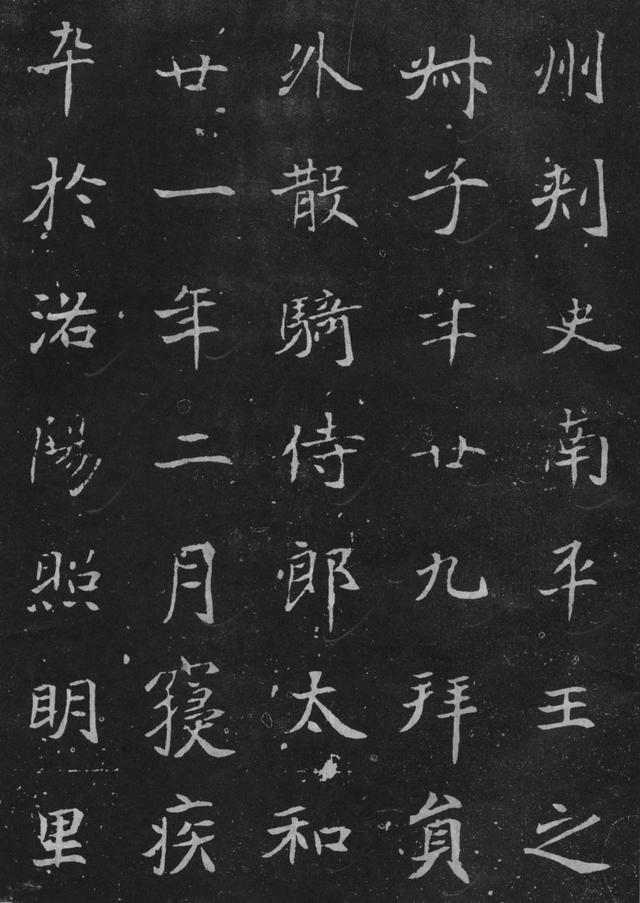 州刾史南平王之
子年廿九拜貟
外散騎侍郎太和
廿一年二月寢疾
卒於洛陽照明里